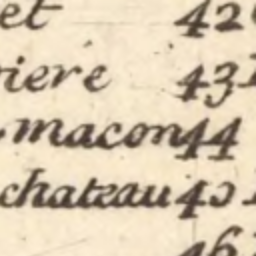 et 42
riere 431
macon 44
chateau 45
46